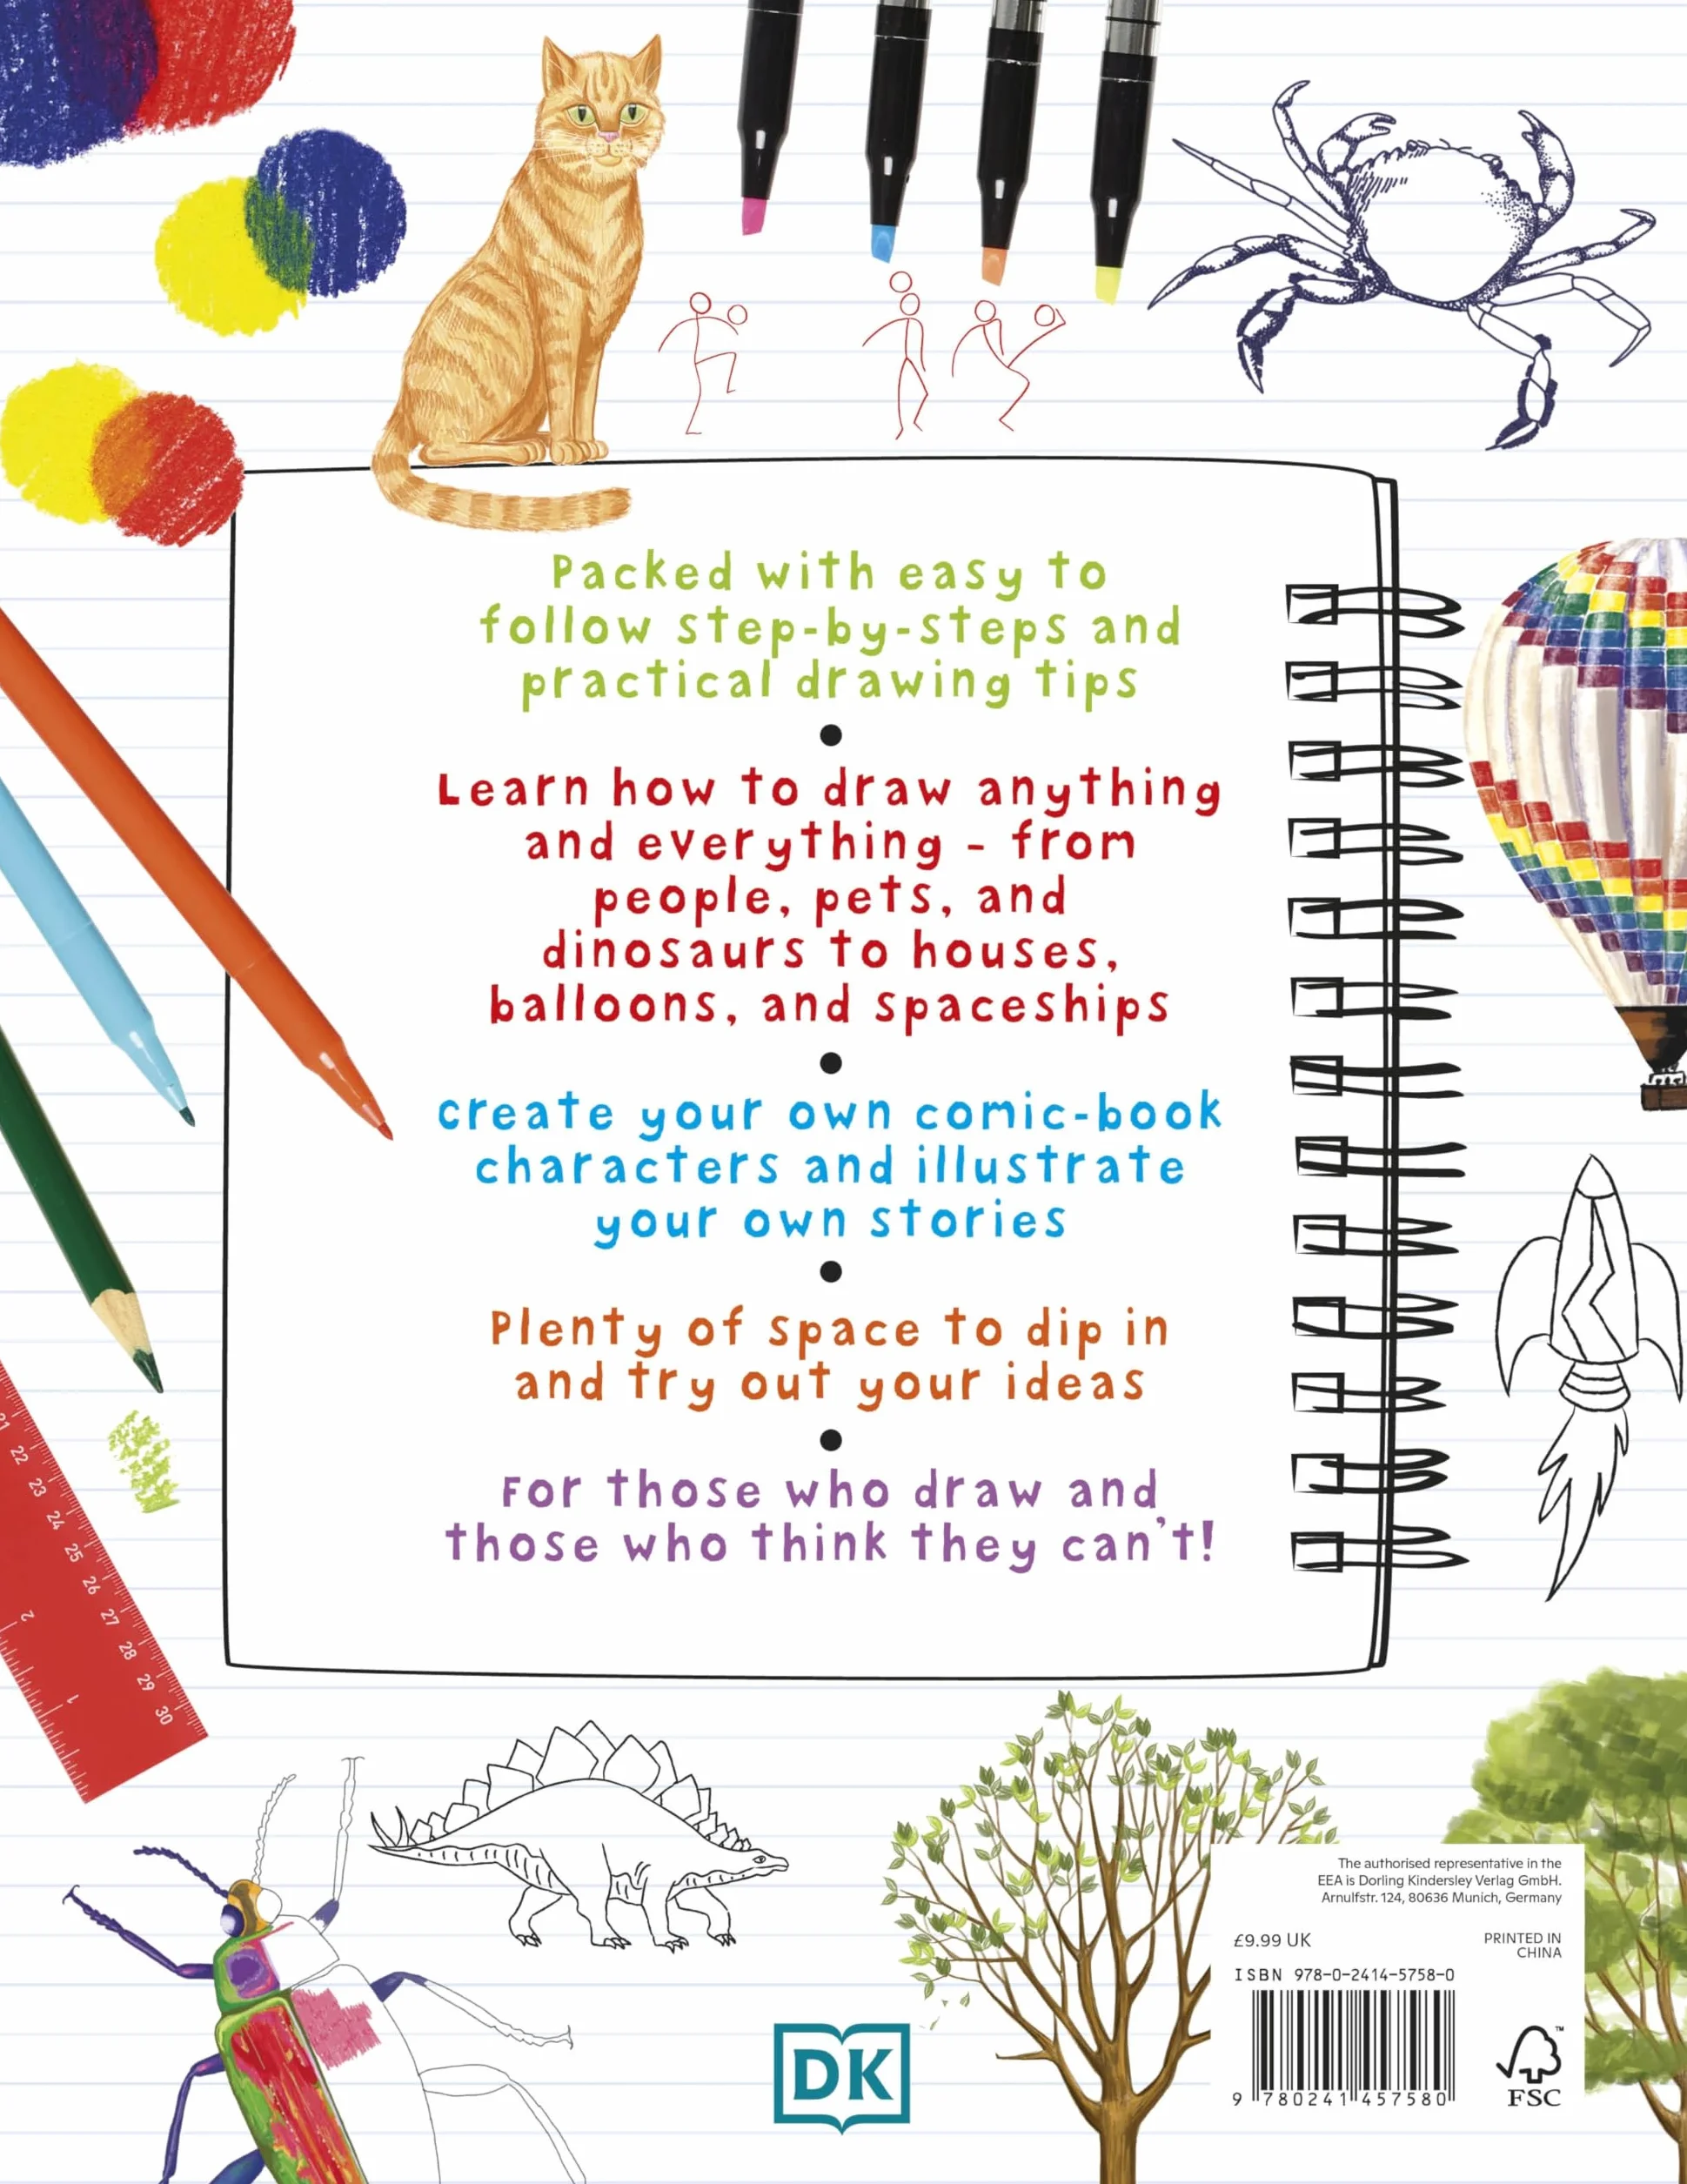 Packed with easy to
follow step-by-steps and
practical drawing tips
●
Learn how to draw anything
and everything - from
people, pets, and
dinosaurs to houses,
balloons, and spaceships
●
create your own comic-book
characters and illustrate
your own stories
●
Plenty of space to dip in
and try out your ideas
●
For those who draw and
those who think they can't!
21
22
23
24
25
26
27
28
29
30
2
1
The authorised representative in the
EEA is Dorling Kindersley Verlag GmbH.
Arnulfstr. 124, 80636 Munich, Germany
£9.99 UK
PRINTED IN
CHINA
ISBN 978-0-2414-5758-0
9 780241 457580
FSC
™
DK